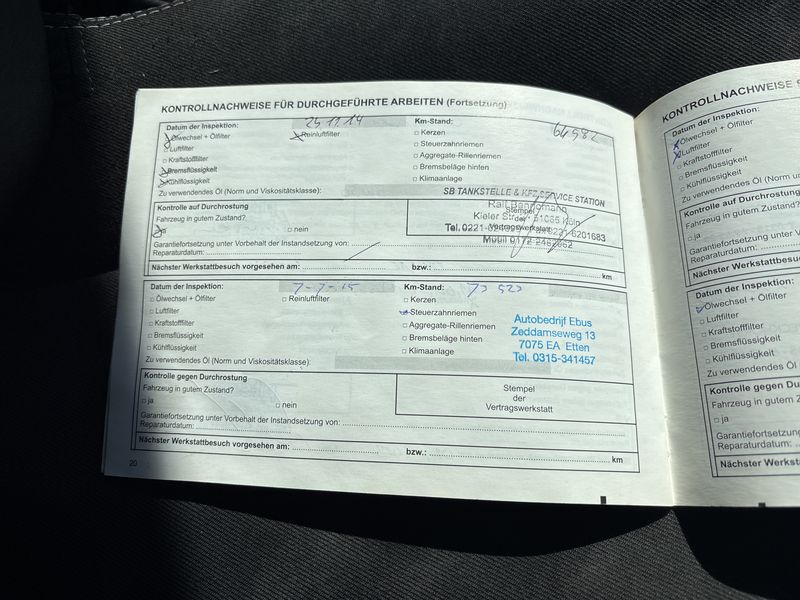 KONTROLLNACHWEISE FÜR DURCHGEFÜHRTE ARBEITEN (Fortsetzung)
Datum der Inspektion: 25 11 14 Km-Stand: 64 982
Ölwechsel + Ölfilter Reinluftfilter Kerzen
Luftfilter Steuerzahnriemen
Kraftstofffilter Aggregate-Rillenriemen
Bremsflüssigkeit Bremsbeläge hinten
Kühlflüssigkeit Klimaanlage
Zu verwendendes Öl (Norm und Viskositätsklasse):
SB TANKSTELLE & KFZ-SERVICE STATION
Kontrolle auf Durchrostung
Fahrzeug in gutem Zustand?
ja nein
Ralf
Kieler Str. 51065 Köln
Tel. 0221- 0221-6201683
Mobil 0172-2462662
Stempel
der
Vertragswerkstatt
Garantiefortsetzung unter Vorbehalt der Instandsetzung von:
Reparaturdatum:
Nächster Werkstattbesuch vorgesehen am: bzw.: km
Datum der Inspektion: 7-7-15 Km-Stand: 73 523
Ölwechsel + Ölfilter Reinluftfilter Kerzen
Luftfilter Steuerzahnriemen
Kraftstofffilter Aggregate-Rillenriemen
Bremsflüssigkeit Bremsbeläge hinten
Kühlflüssigkeit Klimaanlage
Zu verwendendes Öl (Norm und Viskositätsklasse):
Autobedrijf Ebus
Zeddamseweg 13
7075 EA Etten
Tel. 0315-341457
Kontrolle gegen Durchrostung
Fahrzeug in gutem Zustand?
ja nein
Stempel
der
Vertragswerkstatt
Garantiefortsetzung unter Vorbehalt der Instandsetzung von:
Reparaturdatum:
Nächster Werkstattbesuch vorgesehen am: bzw.: km
20
KONTROLLNACHWEISE F
Datum der Inspektion:
Ölwechsel + Ölfilter
Luftfilter
Kraftstofffilter
Bremsflüssigkeit
Kühlflüssigkeit
Zu verwendendes Öl (Norm un
Kontrolle auf Durchrostung
Fahrzeug in gutem Zustand
ja
Garantiefortsetzung unter V
Reparaturdatum:
Nächster Werkstattbesu
Datum der Inspektion:
Ölwechsel + Ölfilter
Luftfilter
Kraftstofffilter
Bremsflüssigkeit
Kühlflüssigkeit
Zu verwendendes Öl (Norm
Kontrolle gegen Du
Fahrzeug in gutem Z
ja
Garantiefortsetzung
Reparaturdatum:
Nächster Werksta